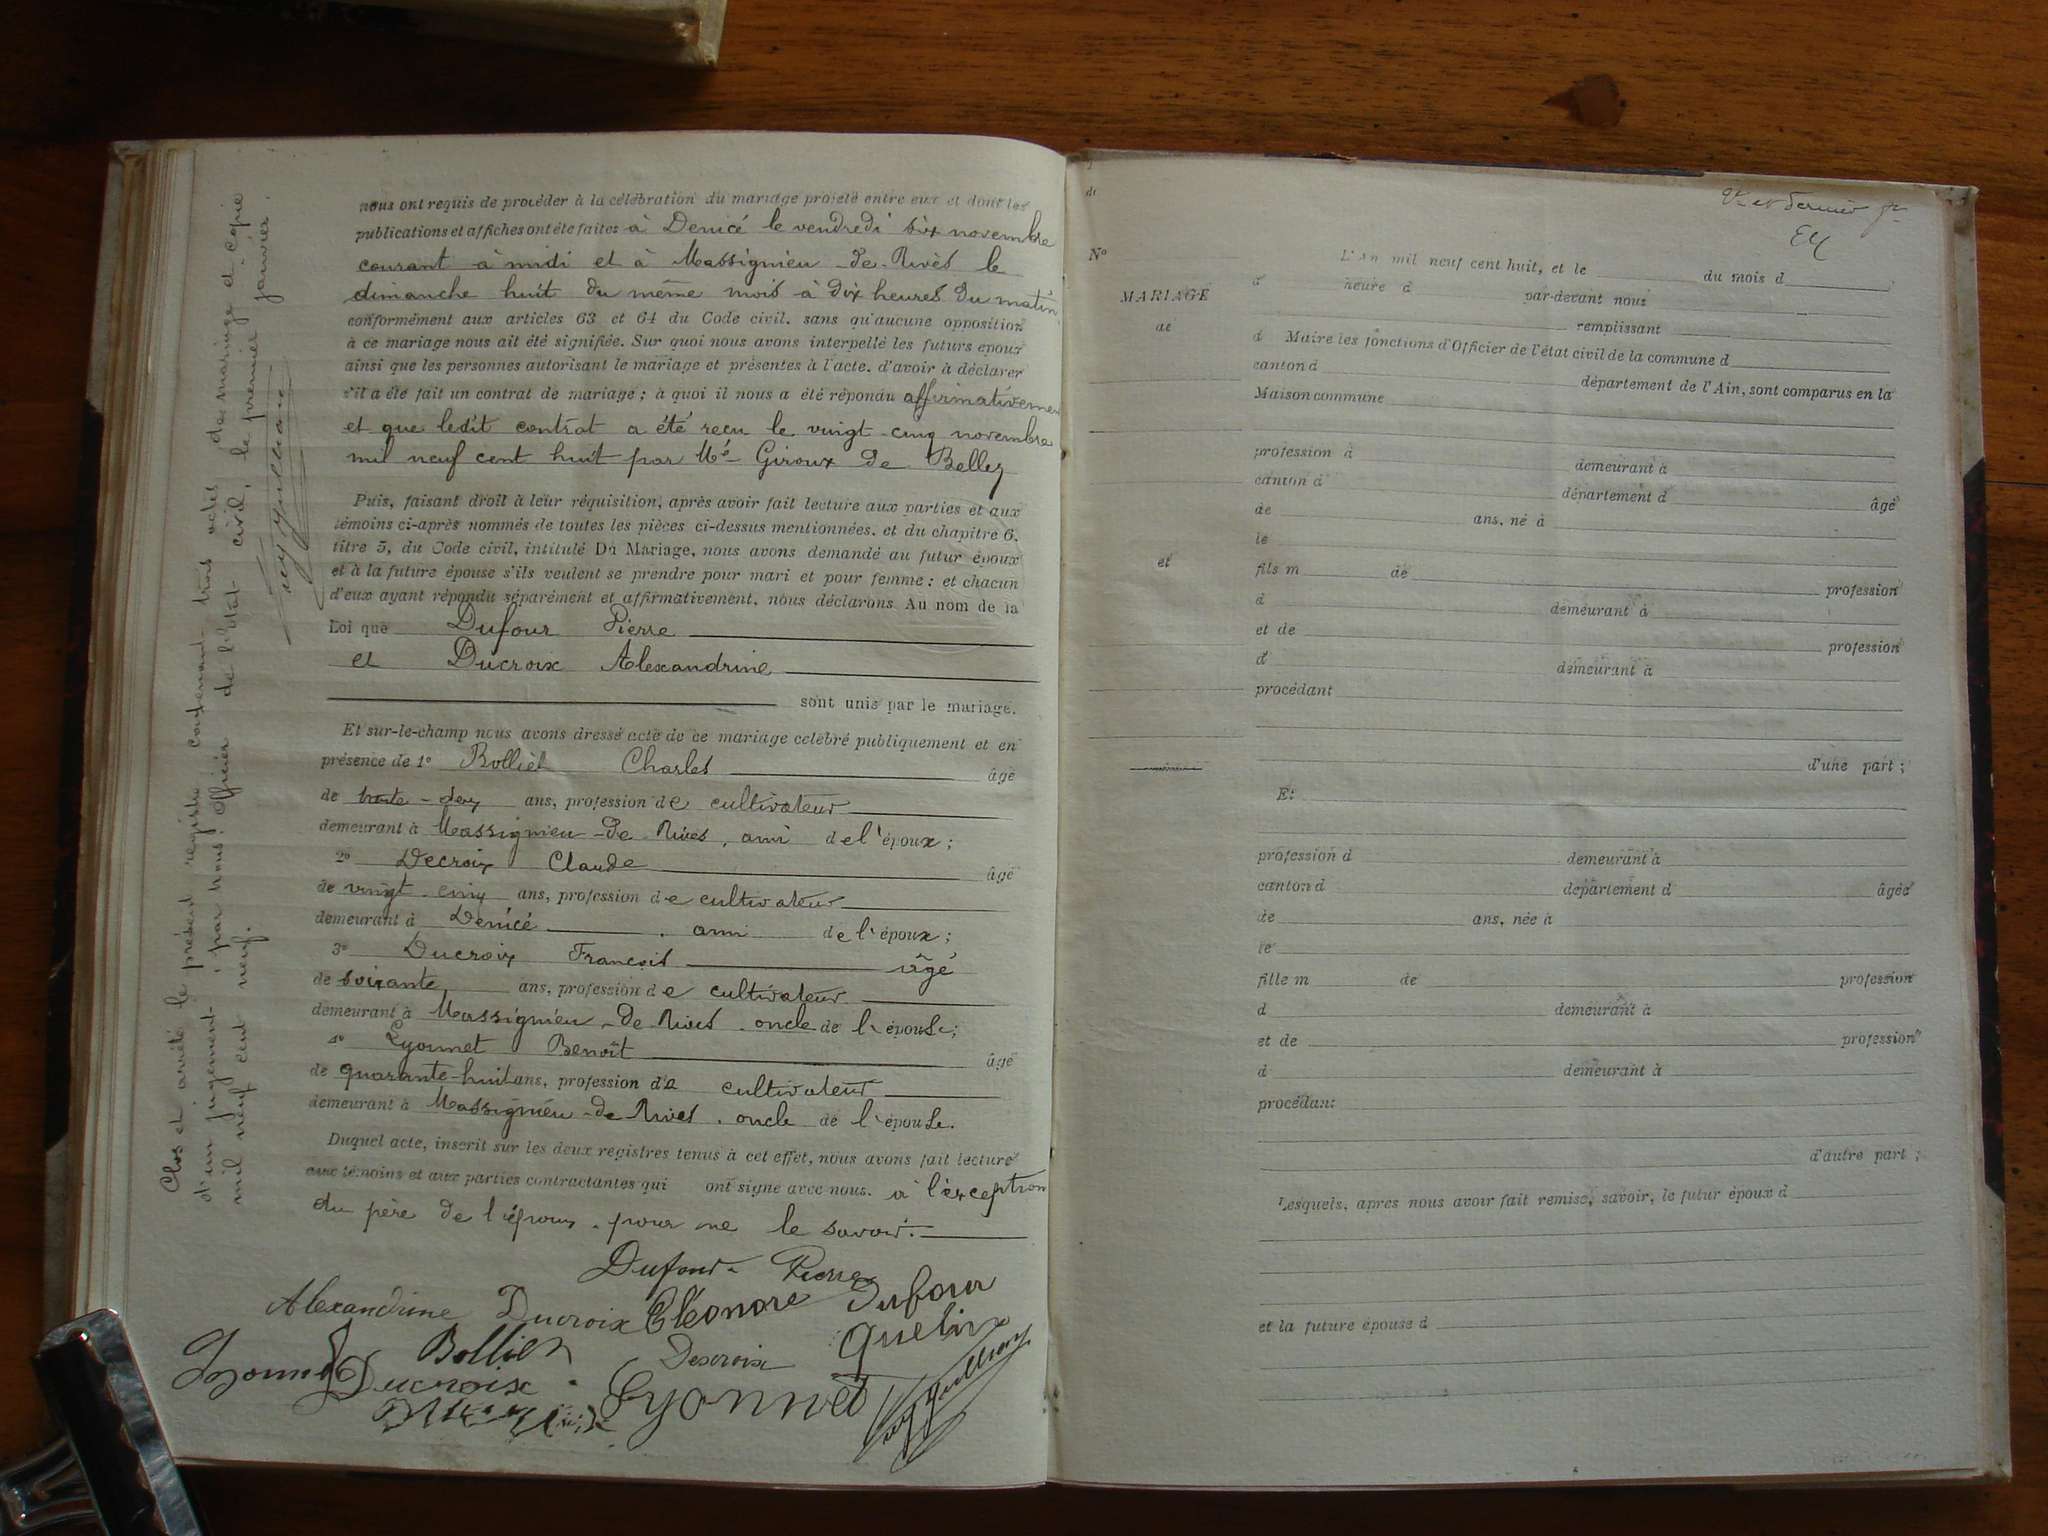 nous ont requis de procéder à la célébration du mariage projeté entre eux et dont les
publications et affiches ont été faites à Denicé le vendredi six novembre
courant à midi et à Massignieu-de-Rives le
dimanche huit du même mois à dix heures du matin
conformément aux articles 63 et 64 du Code civil, sans qu'aucune opposition
à ce mariage nous ait été signifiée. Sur quoi nous avons interpellé les futurs époux
ainsi que les personnes autorisant le mariage et présentes à l'acte, d'avoir à déclarer
s'il a été fait un contrat de mariage ; à quoi il nous a été répondu affirmativement
et que ledit contrat a été reçu le vingt-cinq novembre
mil neuf cent huit par Mé Giroux de Belley
Puis, faisant droit à leur réquisition, après avoir fait lecture aux parties et aux
témoins ci-après nommés de toutes les pièces ci-dessus mentionnées, et du chapitre 6,
titre 5, du Code civil, intitulé Du Mariage, nous avons demandé au futur époux
et à la future épouse s'ils veulent se prendre pour mari et pour femme : et chacun
d'eux ayant répondu séparément et affirmativement, nous déclarons Au nom de la
Loi que Dufour Pierre
et Ducroix Alexandrine
sont unis par le mariage.
Et sur-le-champ nous avons dressé acte de ce mariage célébré publiquement et en
présence de 1° Bolliet Charles âgé
de trente-deux ans, profession de cultivateur
demeurant à Massignieu-de-Rives, ami de l'époux ;
2° Decroix Claude âgé
de vingt-cinq ans, profession de cultivateur
demeurant à Denicé, ami de l'époux ;
3° Ducroix François âgé
de soixante ans, profession de cultivateur
demeurant à Massignieu-de-Rives, oncle de l'épouse ;
4° Lyonnet Benoît âgé
de quarante-huit ans, profession de cultivateur
demeurant à Massignieu-de-Rives, oncle de l'épouse.
Duquel acte, inscrit sur les deux registres tenus à cet effet, nous avons fait lecture
aux témoins et aux parties contractantes qui ont signé avec nous, à l'exception
du père de l'époux, pour ne le savoir.
Dufour Pierre
Alexandrine Ducroix Eléonore Dufour
Bolliet Decroix Guelin
Ducroix Lyonnet
Clos et arrêté le présent registre contenant trois actes de mariage et copie
d'un jugement, par nous Officier de l'état civil, le premier janvier
mil neuf cent neuf.
et dernier
N°
L'An mil neuf cent huit, et le du mois d
MARIAGE
à heure d par-devant nous
remplissant
de
d Maire les fonctions d'Officier de l'état civil de la commune d
canton d département de l'Ain, sont comparus en la
Maison commune
profession d demeurant à
canton d département d âgé
de ans, né à
le
et
fils m de profession
d demeurant à
et de profession
d demeurant à
procédant
d'une part ;
Et
profession d demeurant à
canton d département d âgée
de ans, née à
le
fille m de profession
d demeurant à
et de profession
d demeurant à
procédant
d'autre part ;
Lesquels, après nous avoir fait remise, savoir, le futur époux d
et la future épouse d